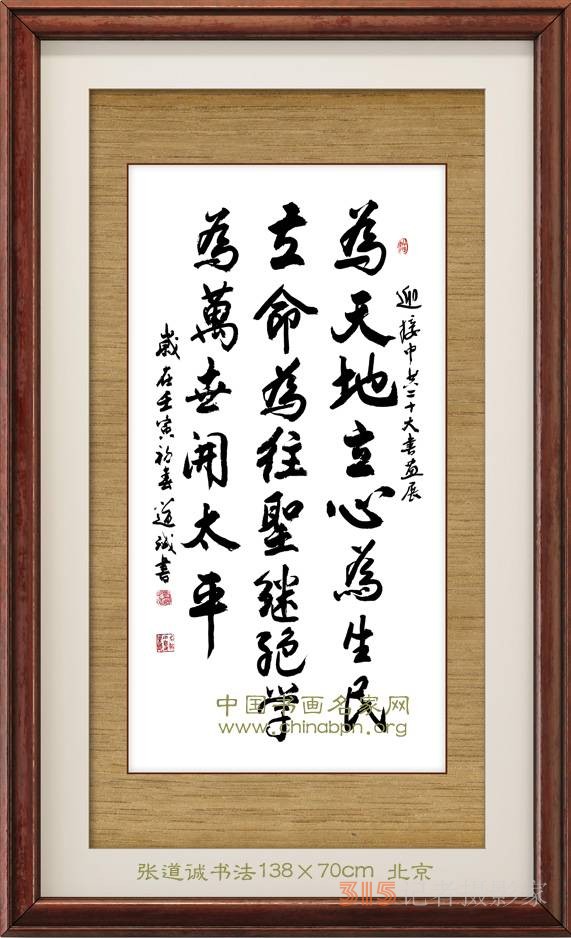 迎接中共二十大书画展
為天地立心為生民
立命為往聖継绝学
為萬世開太平
歲在壬寅初春 道诚書
中国书画名家网
www.chinabpn.org
张道诚书法138×70cm 北京
315记者摄影家